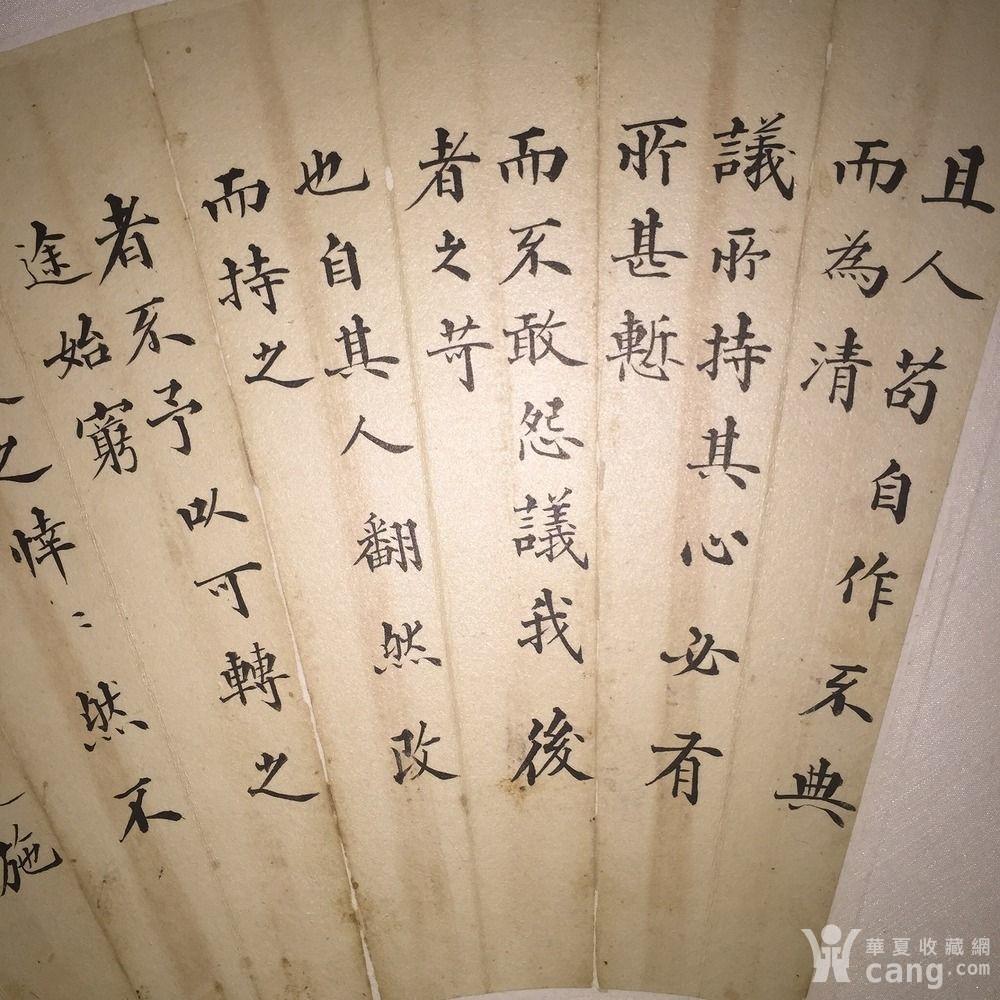 且人苟自作不典
而為清
議所持其心必有
所甚慙
而不敢怨議我後
者之苛
也自其人翻然改
而持之
者不予以可轉之
途始窮
之悻:然不
施
華夏收藏網
cang.com